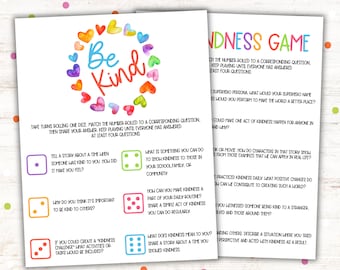 Be
Kind
TAKE TURNS ROLLING ONE DICE. MATCH THE NUMBER ROLLED TO A CORRESPONDING QUESTION,
THEN SHARE YOUR ANSWER. KEEP PLAYING UNTIL EVERYONE HAS ANSWERED
AT LEAST FOUR QUESTIONS.
TELL A STORY ABOUT A TIME WHEN
SOMEONE WAS KIND TO YOU. HOW DID
IT MAKE YOU FEEL?
WHAT IS SOMETHING YOU CAN DO
TO SHOW KINDNESS TO THOSE IN
YOUR SCHOOL, FAMILY, OR
COMMUNITY?
WHY DO YOU THINK IT'S IMPORTANT
TO BE KIND TO OTHERS?
HOW CAN YOU MAKE KINDNESS A
PART OF YOUR DAILY ROUTINE?
SHARE A SIMPLE ACT OF KINDNESS
YOU CAN DO REGULARLY.
IF YOU COULD CREATE A "KINDNESS
CHALLENGE" WHAT ACTIVITIES OR
TASKS WOULD BE INCLUDED?
WHAT DOES KINDNESS MEAN TO YOU?
SHARE A STORY ABOUT A TIME YOU
SHOWED KINDNESS.
NDNESS GAME
TO A CORRESPONDING QUESTION,
KEEP PLAYING UNTIL EVERYONE HAS ANSWERED
AT LEAST FOUR QUESTIONS.
SUPERHERO PERSONA, WHAT WOULD YOUR SUPERHERO NAME
WOULD YOU PERFORM TO MAKE THE WORLD A BETTER PLACE?
ACT OF KINDNESS HAPPEN FOR ANYONE IN
OR MOVIE. HOW DO CHARACTERS IN THAT STORY SHOW
THOSE EXAMPLES THAT WE CAN APPLY IN REAL LIFE?
PRACTICED KINDNESS DAILY. WHAT POSITIVE CHANGES DO
CAN WE CONTRIBUTE TO CREATING SUCH A WORLD?
WERE KIND TO A STRANGER.
AND THOSE AROUND THEM?
OTHERS. DESCRIBE A SITUATION WHERE YOU TRIED
PERSPECTIVE AND ACTED WITH KINDNESS AS A RESULT.